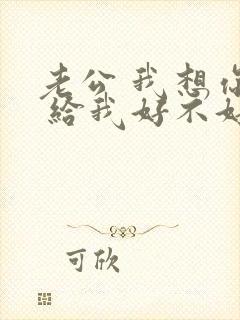 老公我想你
給我好不好
可欣